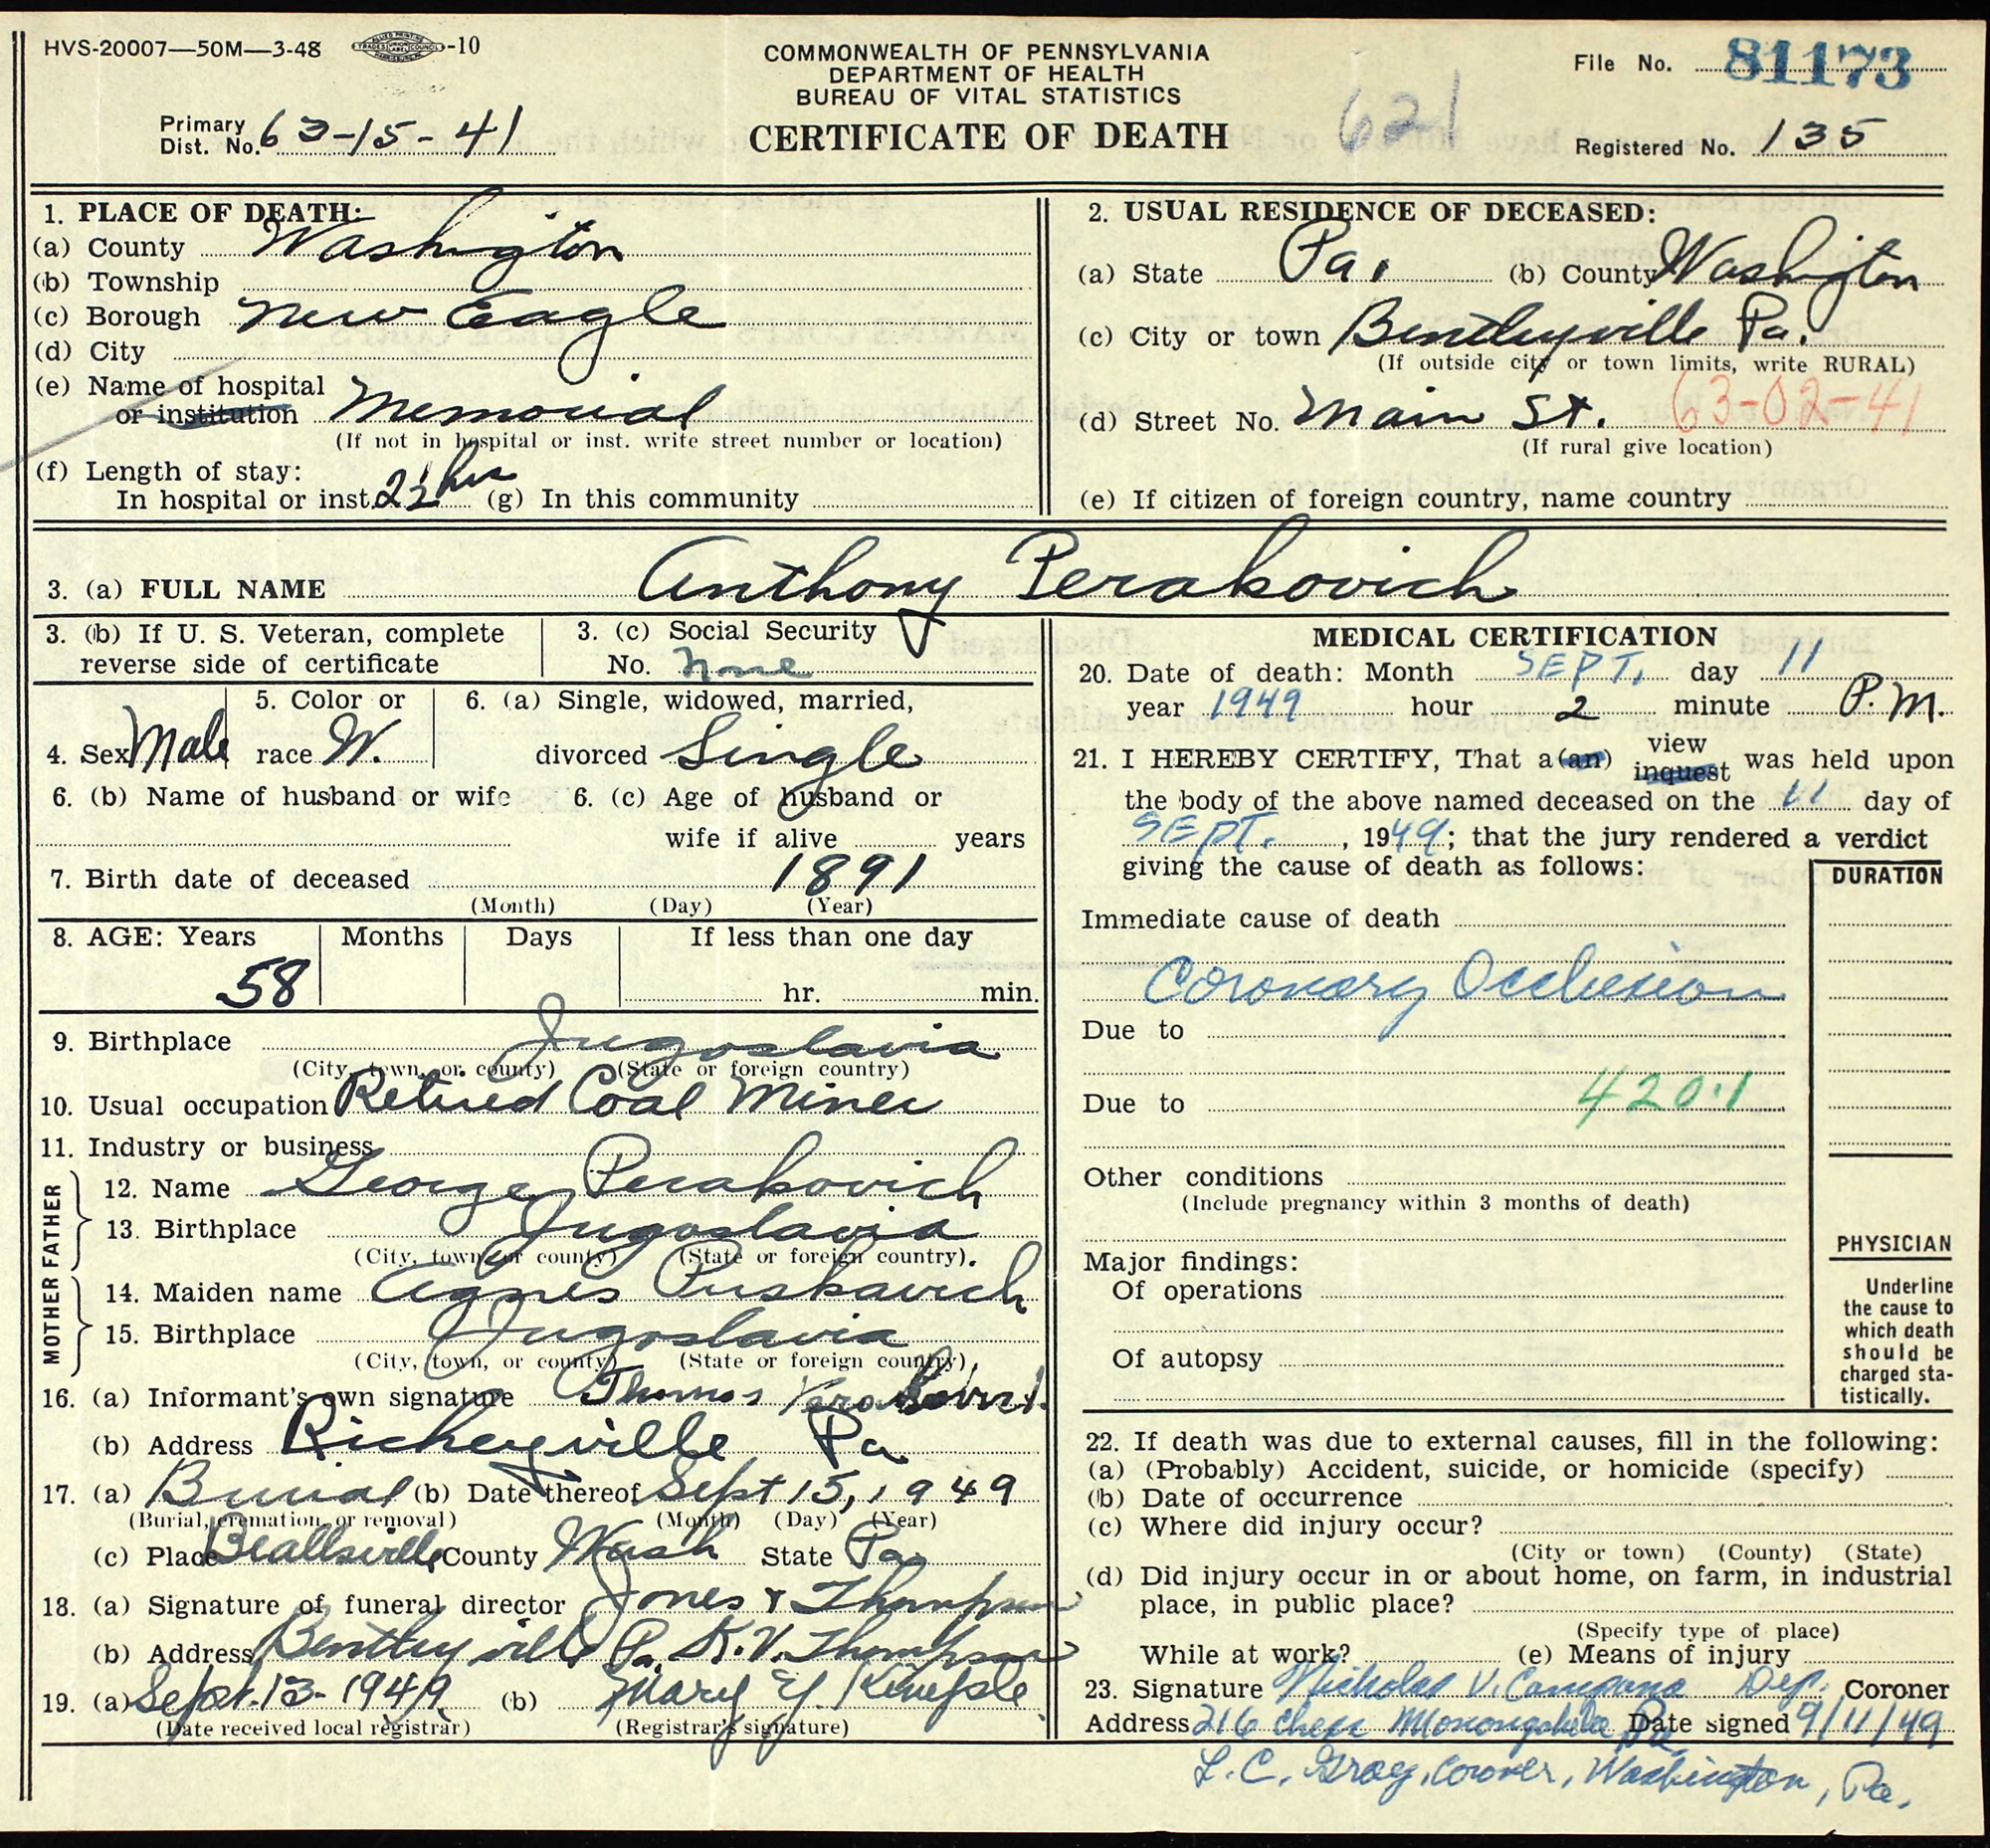 HVS-20007—50M—3-48 -10
COMMONWEALTH OF PENNSYLVANIA
DEPARTMENT OF HEALTH
BUREAU OF VITAL STATISTICS
CERTIFICATE OF DEATH
File No. 81173
Primary Dist. No. 63-15-41
621
Registered No. 135
1. PLACE OF DEATH:
(a) County Washington
(b) Township
(c) Borough New Eagle
(d) City
(e) Name of hospital
or institution Memorial
(If not in hospital or inst. write street number or location)
(f) Length of stay:
In hospital or inst. hrs (g) In this community
2. USUAL RESIDENCE OF DECEASED:
(a) State Pa. (b) County Washington
(c) City or town Bentleyville Pa.
(If outside city or town limits, write RURAL)
(d) Street No. Main St. 63-02-41
(If rural give location)
(e) If citizen of foreign country, name country
3. (a) FULL NAME Anthony Perakovich
3. (b) If U. S. Veteran, complete
reverse side of certificate
3. (c) Social Security
No. None
4. Sex Male
5. Color or
race W.
6. (a) Single, widowed, married,
divorced Single
6. (b) Name of husband or wife
6. (c) Age of husband or
wife if alive years
7. Birth date of deceased 1891
(Month) (Day) (Year)
8. AGE: Years Months Days If less than one day
58 hr. min.
9. Birthplace Jugoslavia
(City, town, or county) (State or foreign country)
10. Usual occupation Retired Coal Miner
11. Industry or business
FATHER
12. Name George Perakovich
13. Birthplace Jugoslavia
(City, town, or county) (State or foreign country).
MOTHER
14. Maiden name Agnes Puskavich
15. Birthplace Jugoslavia
(City, town, or county) (State or foreign country),
16. (a) Informant's own signature Thomas
(b) Address Richeyville Pa
17. (a) Burial (b) Date thereof Sept 15, 1949
(Burial, cremation, or removal) (Month) (Day) (Year)
(c) Place Beallsville County Wash State Pa
18. (a) Signature of funeral director Jones & Thompson
(b) Address Bentleyville Pa. K.V. Thompson
19. (a) Sept. 13-1949 (b) Mary Y.
(Date received local registrar) (Registrar's signature)
MEDICAL CERTIFICATION
20. Date of death: Month SEPT. day 11
year 1949 hour 2 minute P.M.
21. I HEREBY CERTIFY, That a (an) view inquest was held upon
the body of the above named deceased on the 11 day of
SEPT., 1949; that the jury rendered a verdict
giving the cause of death as follows:
DURATION
Immediate cause of death
Coronary Occlusion
Due to
Due to 420.1
Other conditions
(Include pregnancy within 3 months of death)
Major findings:
Of operations
Of autopsy
PHYSICIAN
Underline
the cause to
which death
should be
charged sta-
tistically.
22. If death was due to external causes, fill in the following:
(a) (Probably) Accident, suicide, or homicide (specify)
(b) Date of occurrence
(c) Where did injury occur?
(City or town) (County) (State)
(d) Did injury occur in or about home, on farm, in industrial
place, in public place?
(Specify type of place)
While at work? (e) Means of injury
23. Signature Nicholas V. Campana Dep. Coroner
Address 216 Chess Monongahela Pa. Date signed 9/11/49
L. C. Gray, Coroner, Washington, Pa.